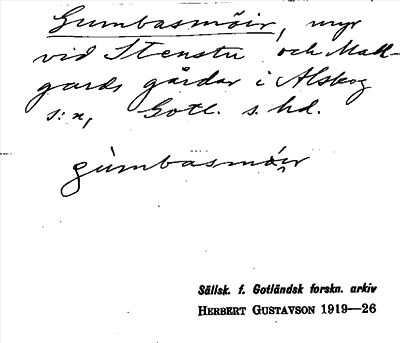 Gumbasmöir, myr
vid Stenstu och Mall-
gards gårdar i Alskog
s:n, Gotl. s. hd.
gùmbasmói̯r
Sällsk. f. Gotländsk forskn. arkiv
HERBERT GUSTAVSON 1919—26